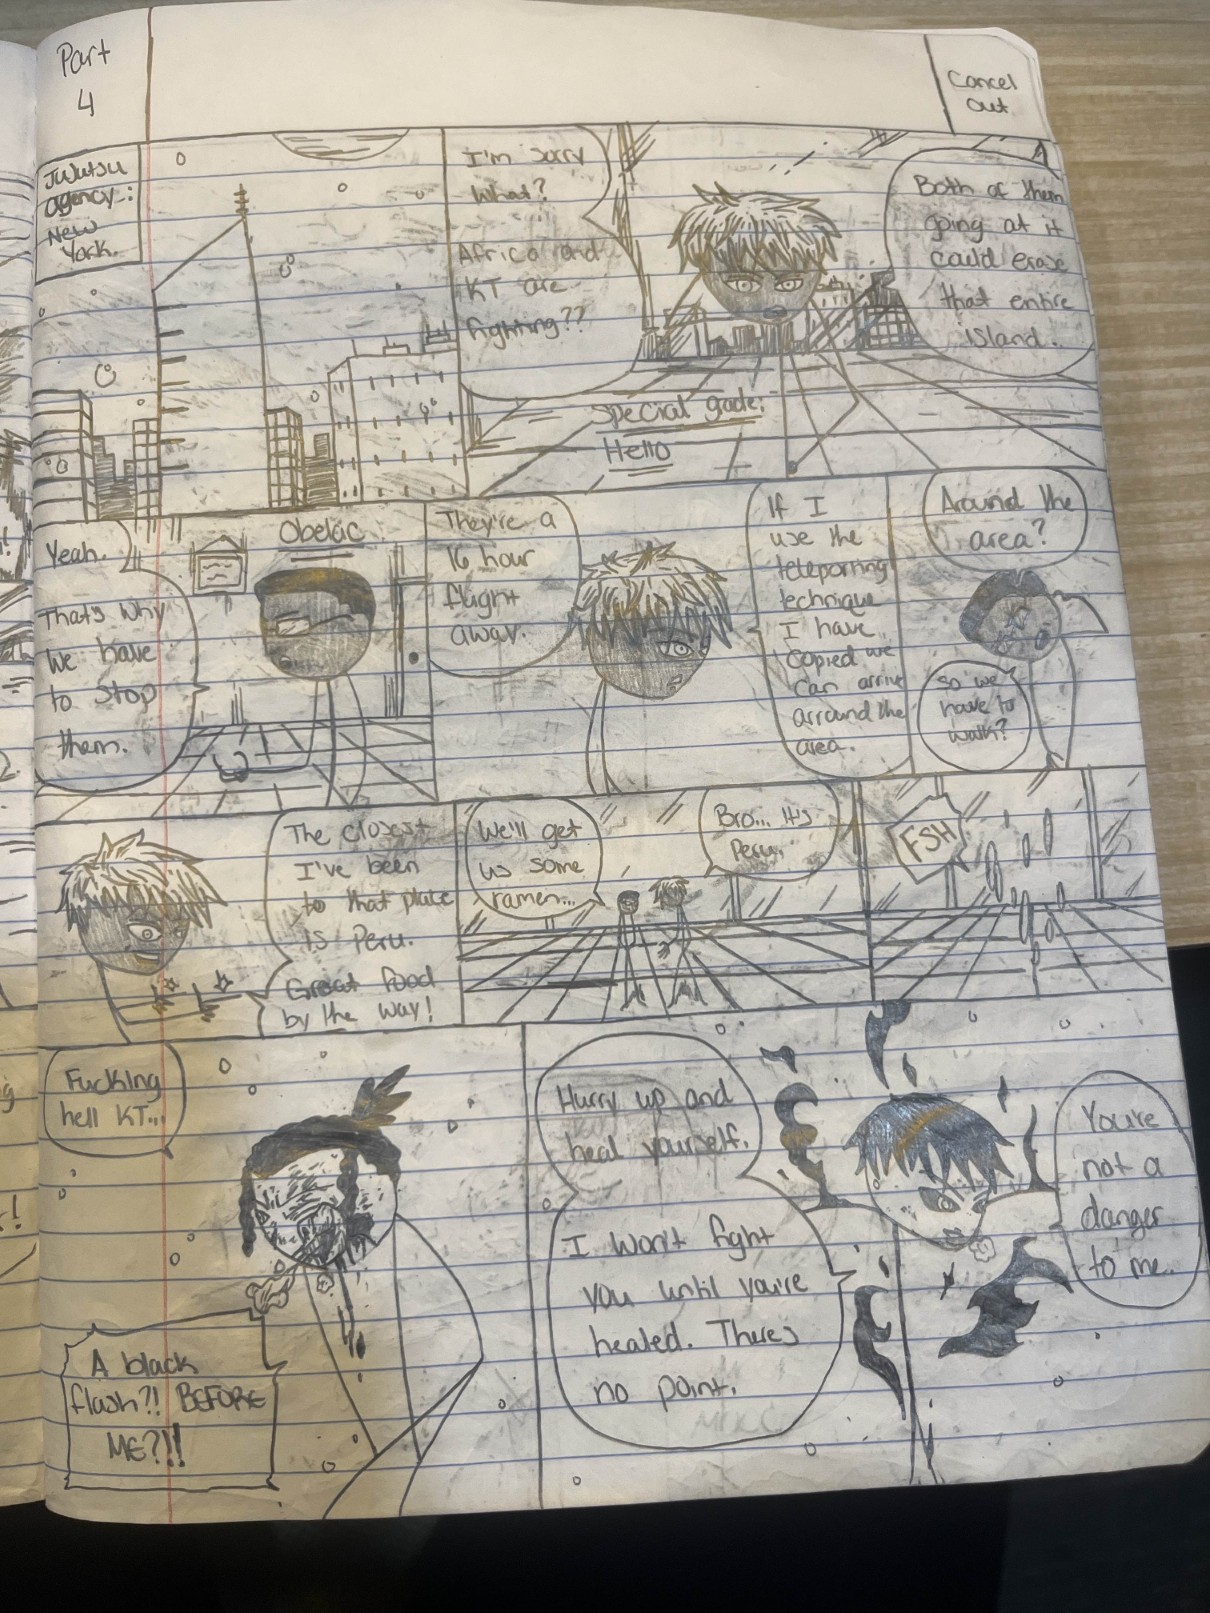 Part
4
Cancel
out
Jujutsu
agency:
New
York.
I'm sorry
What?
Africa and
KT are
fighting??
Both of them
going at it
could erase
that entire
island.
Special grade:
Hello
Yeah.
That's why
we have
to stop
them.
Obelac
They're a
16 hour
flight
away.
If I
use the
teleporting
technique
I have
copied we
can arrive
arround the
area.
Around the
area?
so we
have to
walk?
The closest
I've been
to that place
is Peru.
Great food
by the way!
We'll get
us some
ramen...
Bro... It's
Peru.
FSH
Fucking
hell KT...
A black
flash?!! BEFORE
ME?!!!
Hurry up and
heal yourself.
I won't fight
you until you're
healed. Theres
no point.
You're
not a
danger
to me..